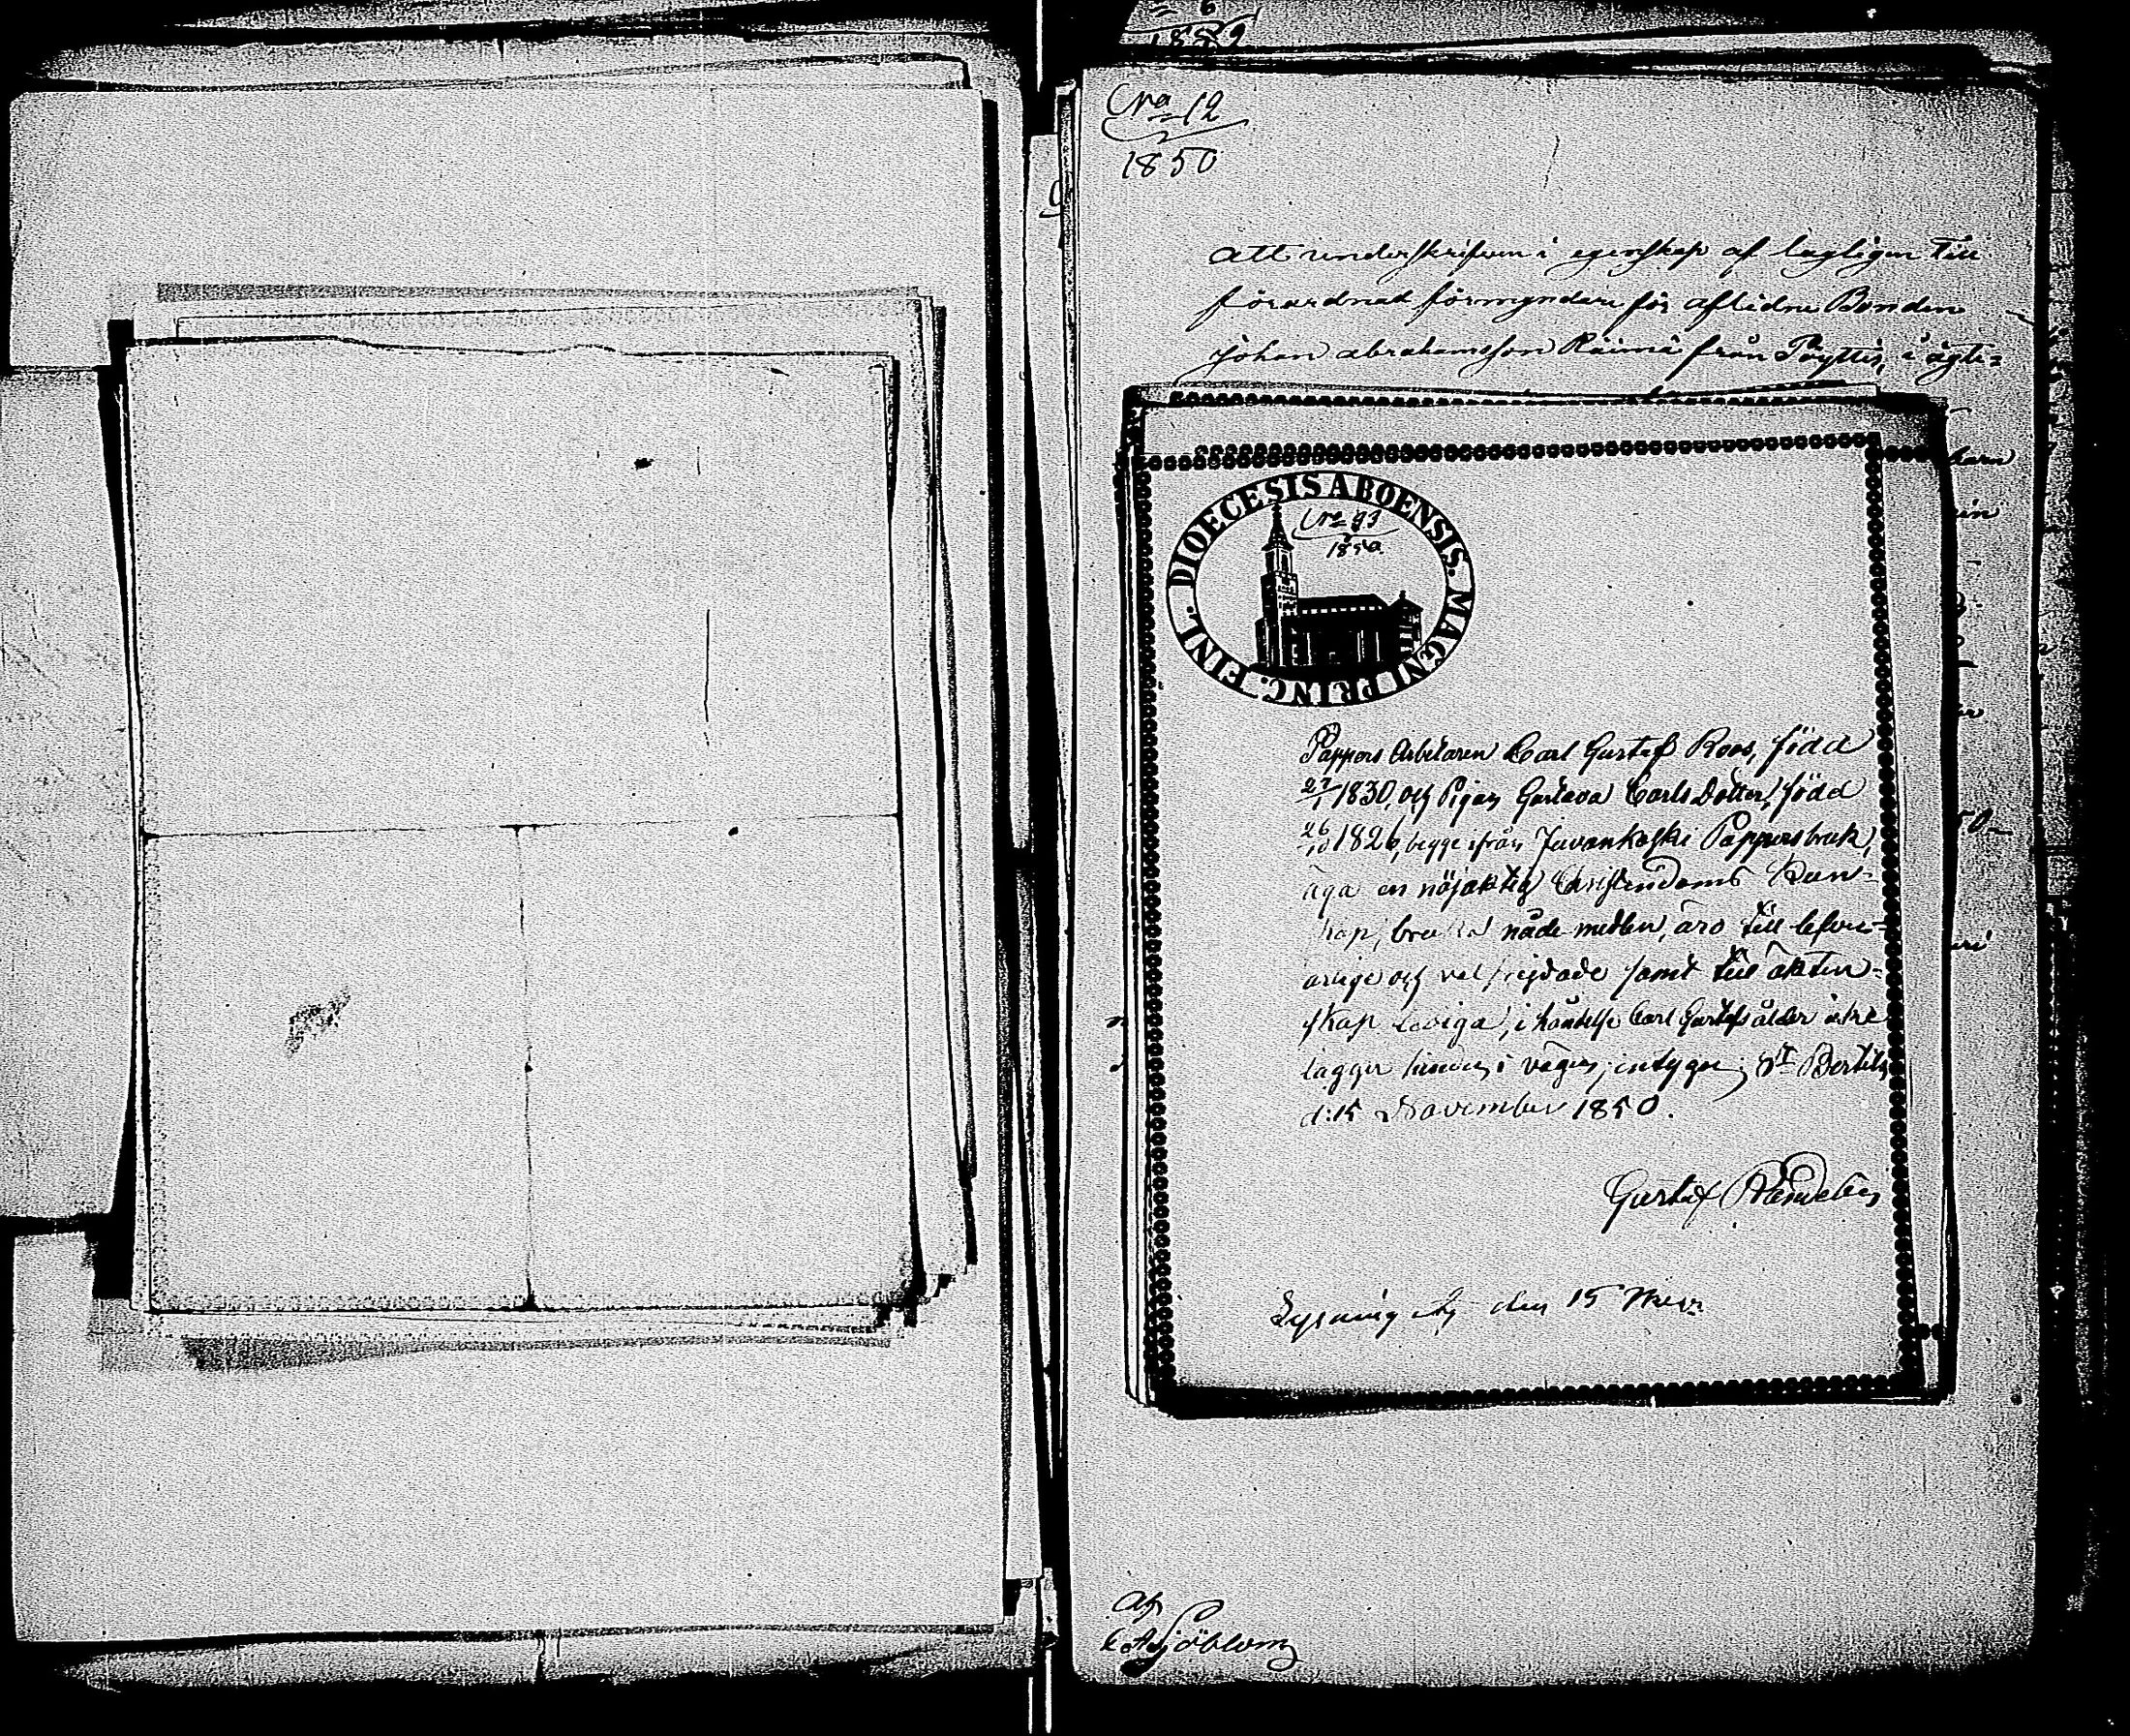 6
1889
Nra 12
1850
Att underskrifven i egenskap af lagligen till
förordnad förmyndare för aflidne Bonden
Johan Abrahamsson Räimä från Pöyttis, i ägte=
barn
in
50
DIOECESIS ABOENSIS. MAGNI PRINC. FINL.
Nra 93
1850
Pappers Arbetaren Carl Gustaf Roos, född
27/1 1830, och Pigan Gustava Carlsdotter, född
26/10 1826, begge ifrån Juvankoski Pappersbruk,
äga en nöjaktig Christendoms Kun-
skap, bruka nåde medlen, äro till lefver-
arige och välfrejdade samt till äkten-
skap lediga, i händelse Carl Gustafs ålder icke
lägger hinder i vägen; intygar; St Bertils
d: 15 November 1850.
Gustaf
Lysning den 15
Af
C A Sjöblom